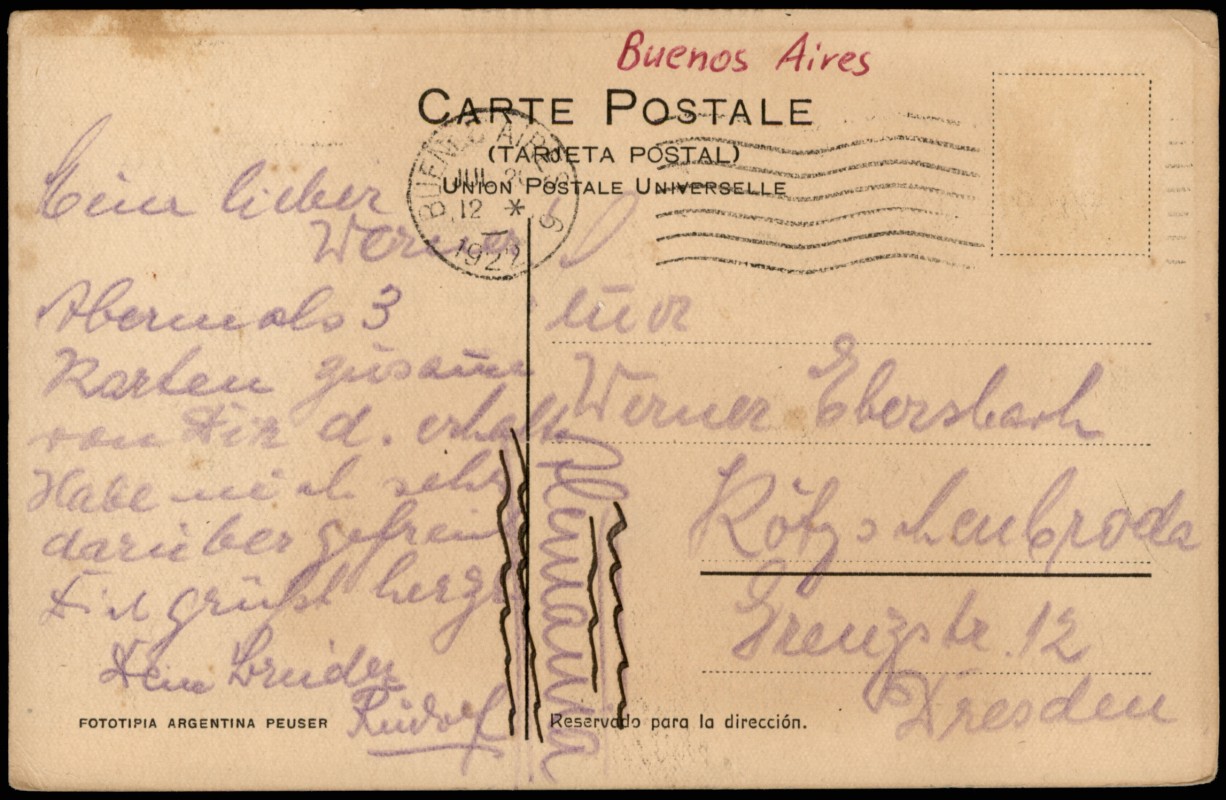 Buenos Aires
CARTE POSTALE
(TARJETA POSTAL)
UNION POSTALE UNIVERSELLE
BUENOS AIRES
JUL 2
12 *
9
1927
Mein lieber
Werner!
Abermals 3
Karten zusamm
von Dir d. erhalt.
Habe mich sehr
darüber gefreut
Dich grüßt herzl
Dein Bruder
Rudolf
Werner Ebersbach
Kötzschenbroda
Grenzstr. 12
Dresden
Alemania
FOTOTIPIA ARGENTINA PEUSER
Reservado para la dirección.